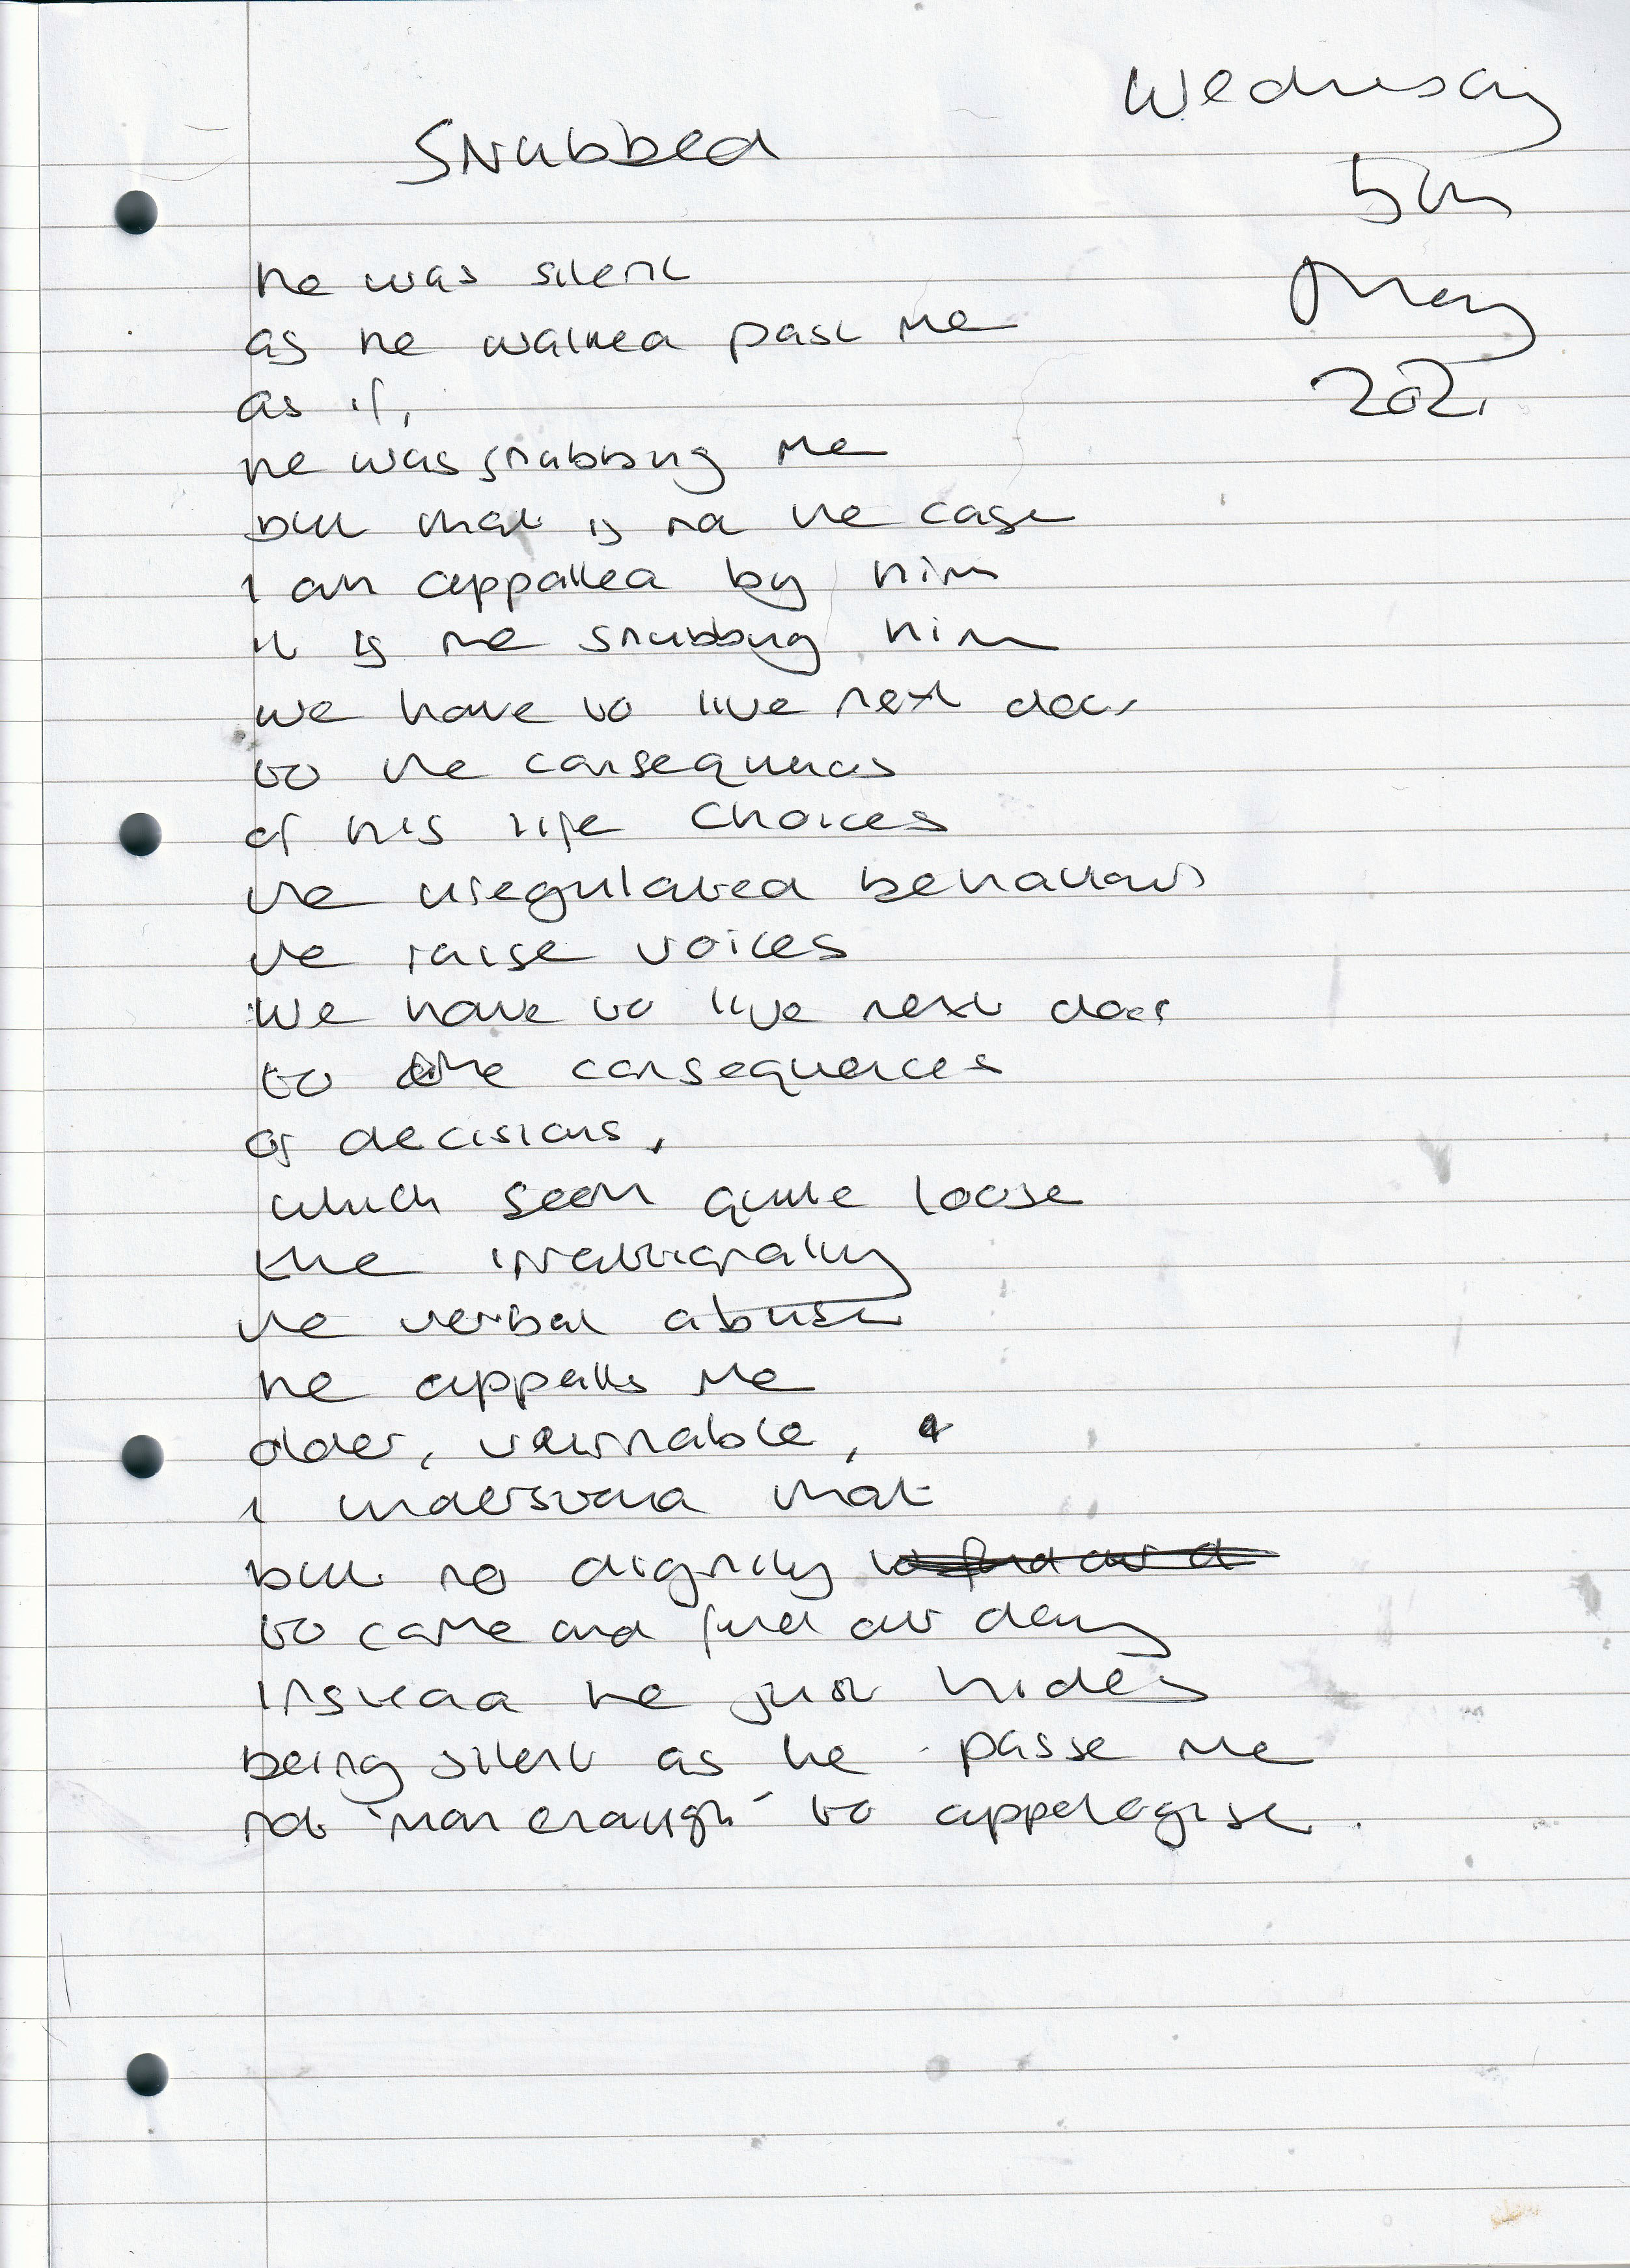 Wednesday
Snubbed
5th
May
2021
he was silent
as he walked past me
as if,
he was snubbing me
but that is not the case
I am appalled by him
it is me snubbing him
we have to live next door
to the consequences
of his life choices
the unregulated behaviours
the raise voices
we have to live next door
to the consequences
of decisions,
which seem quite loose
the irrationality
the verbal abuse
he appalls me
older, vulnrable,
I understand that
but no dignity
to come and find out day
instead he just hides
being silent as he passe me
not 'man enough' to appologise.